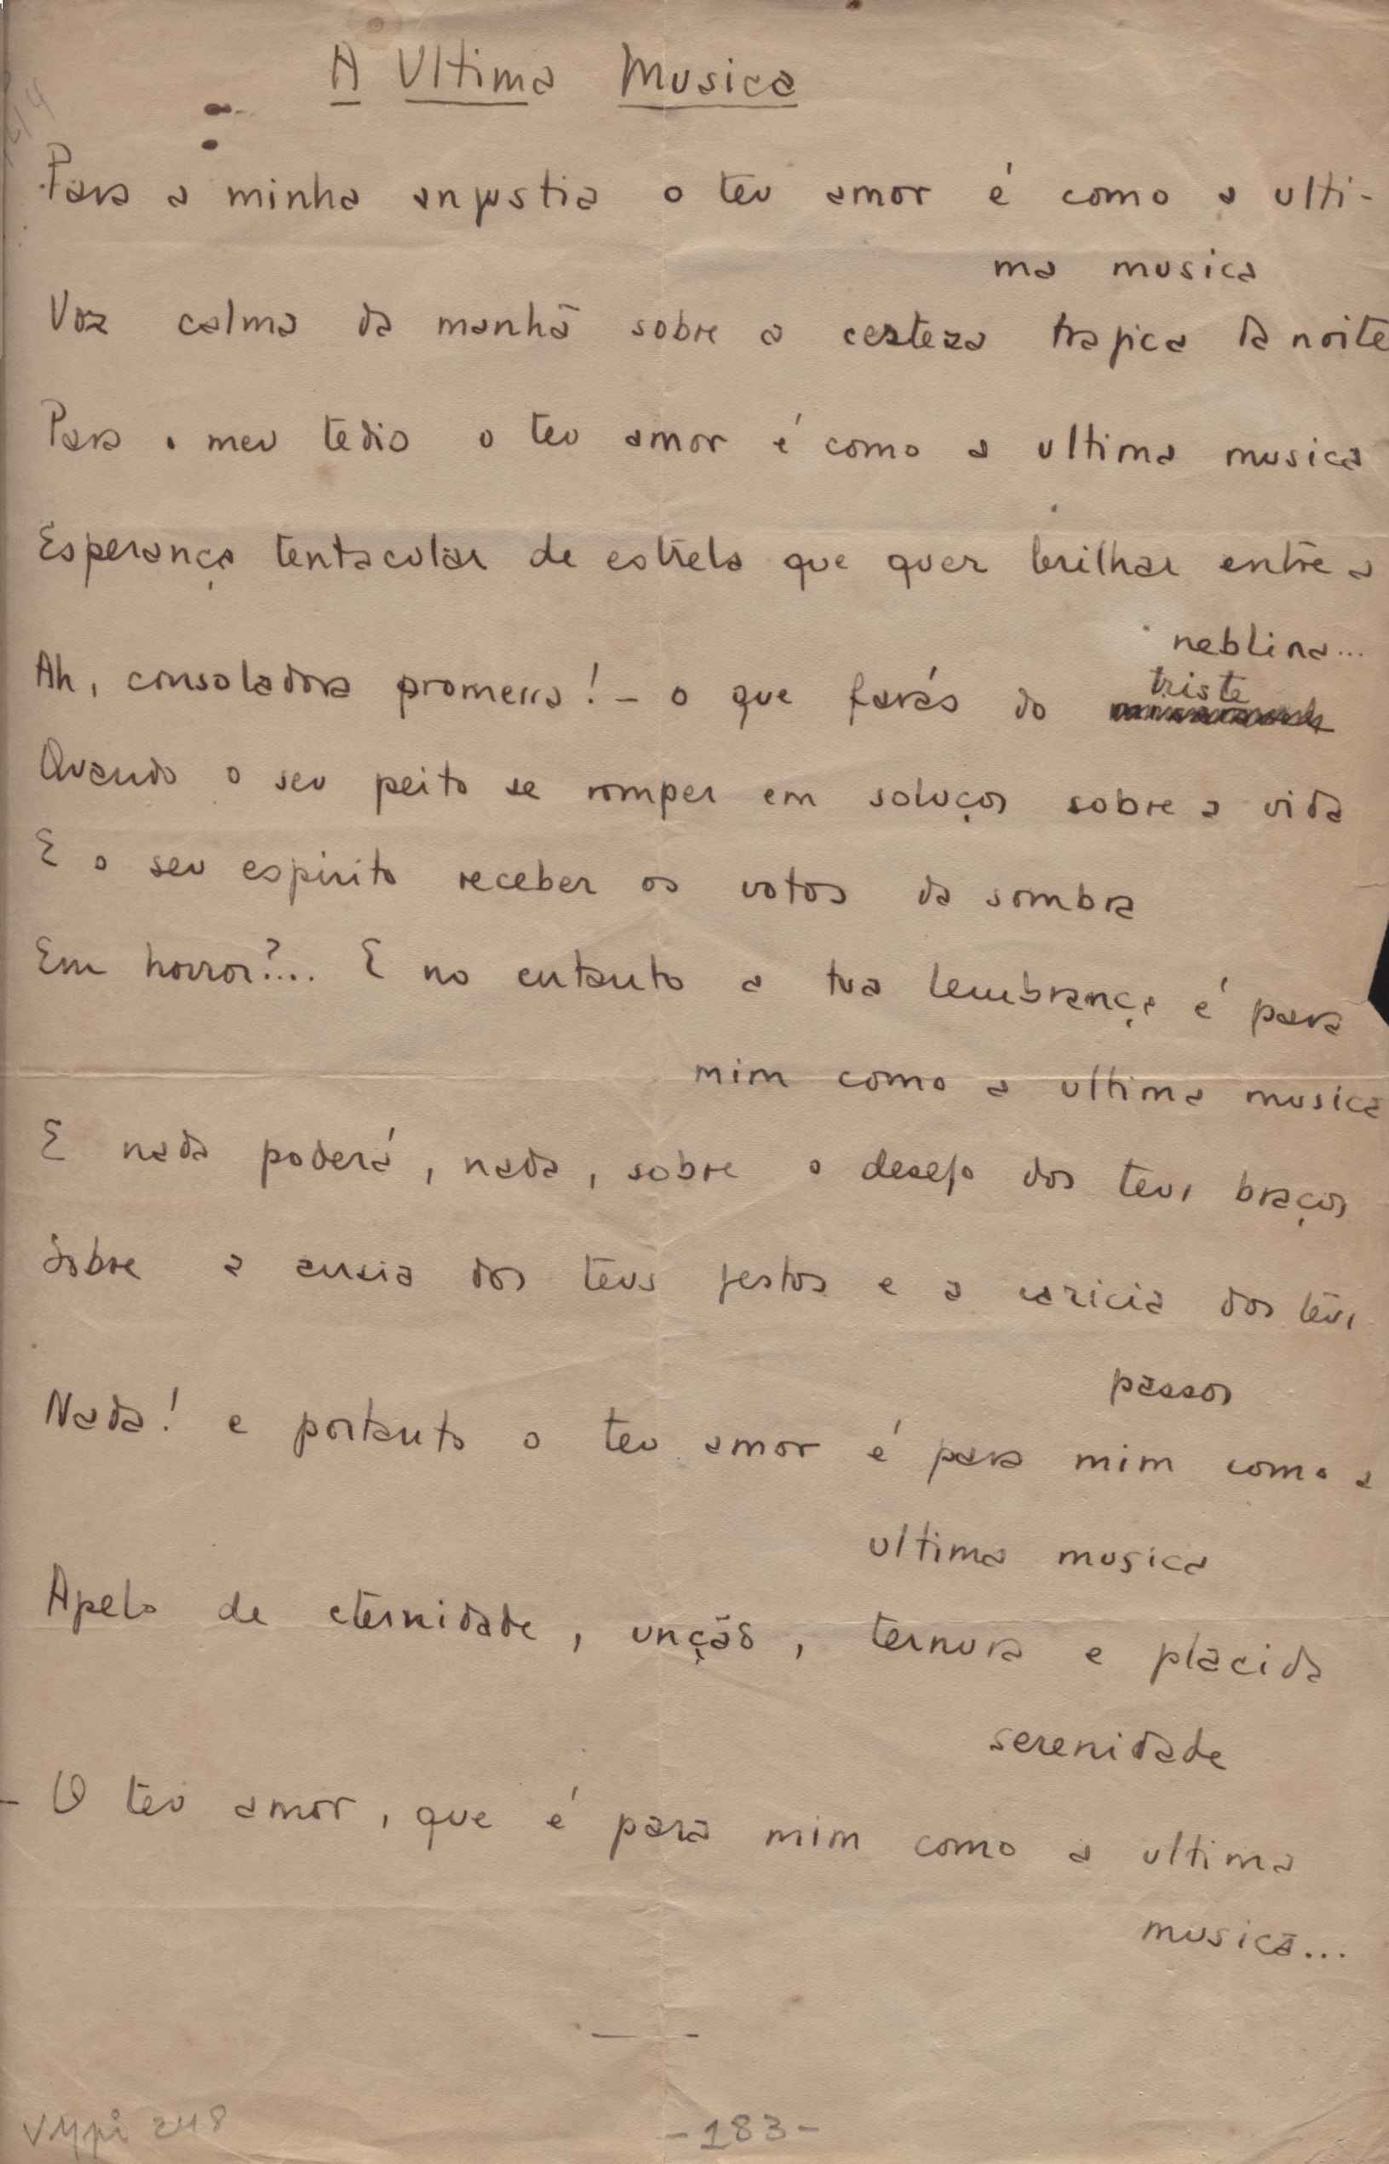 A Ultima Musica
Para a minha angustia o teu amor é como a ulti-
ma musica
Voz calma da manhã sobre a certeza tragica da noite
Para o meu tedio o teu amor é como a ultima musica
Esperança tentacular de estrela que quer brilhar entre a
neblina...
Ah, consoladora promessa! - o que farás do triste
Quando o seu peito se romper em soluços sobre a vida
E o seu espirito receber os votos da sombra
Em horror?... E no entanto a tua lembrança é para
mim como a ultima musica
E nada poderá, nada, sobre o desejo dos teus braços
Sobre a ansia dos teus gestos e a caricia dos teus
passos
Nada! e portanto o teu amor é para mim como a
ultima musica
Apelo de eternidade, unção, ternura e placida
serenidade
- O teu amor, que é para mim como a ultima
musica...
-183-